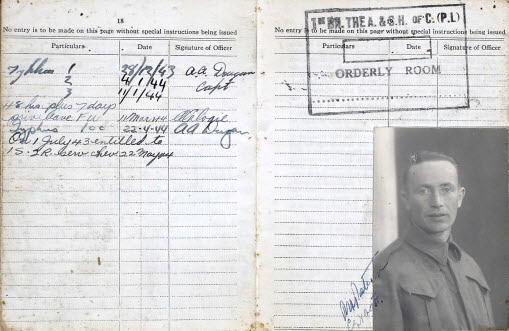 18
No entry is to be made on this page without special instructions being issued
Particulars Date Signature of Officer
Typhus 1 28/12/43 A.A. Drugan
2 4/1/44 Capt
3 11/1/44
48 hrs plus 7 days
Privilave F U 11 Mar 44
Typhus 1 cc 22-4-44 AA Drugan
On 1 July 43 entitled to
1 S. & R. Serv chev 22 May 44
No entry is to be made on this page without special instructions being issued
Particulars Date Signature of Officer
1st BN. THE A. & S.H. OF C. (P.L)
ORDERLY ROOM